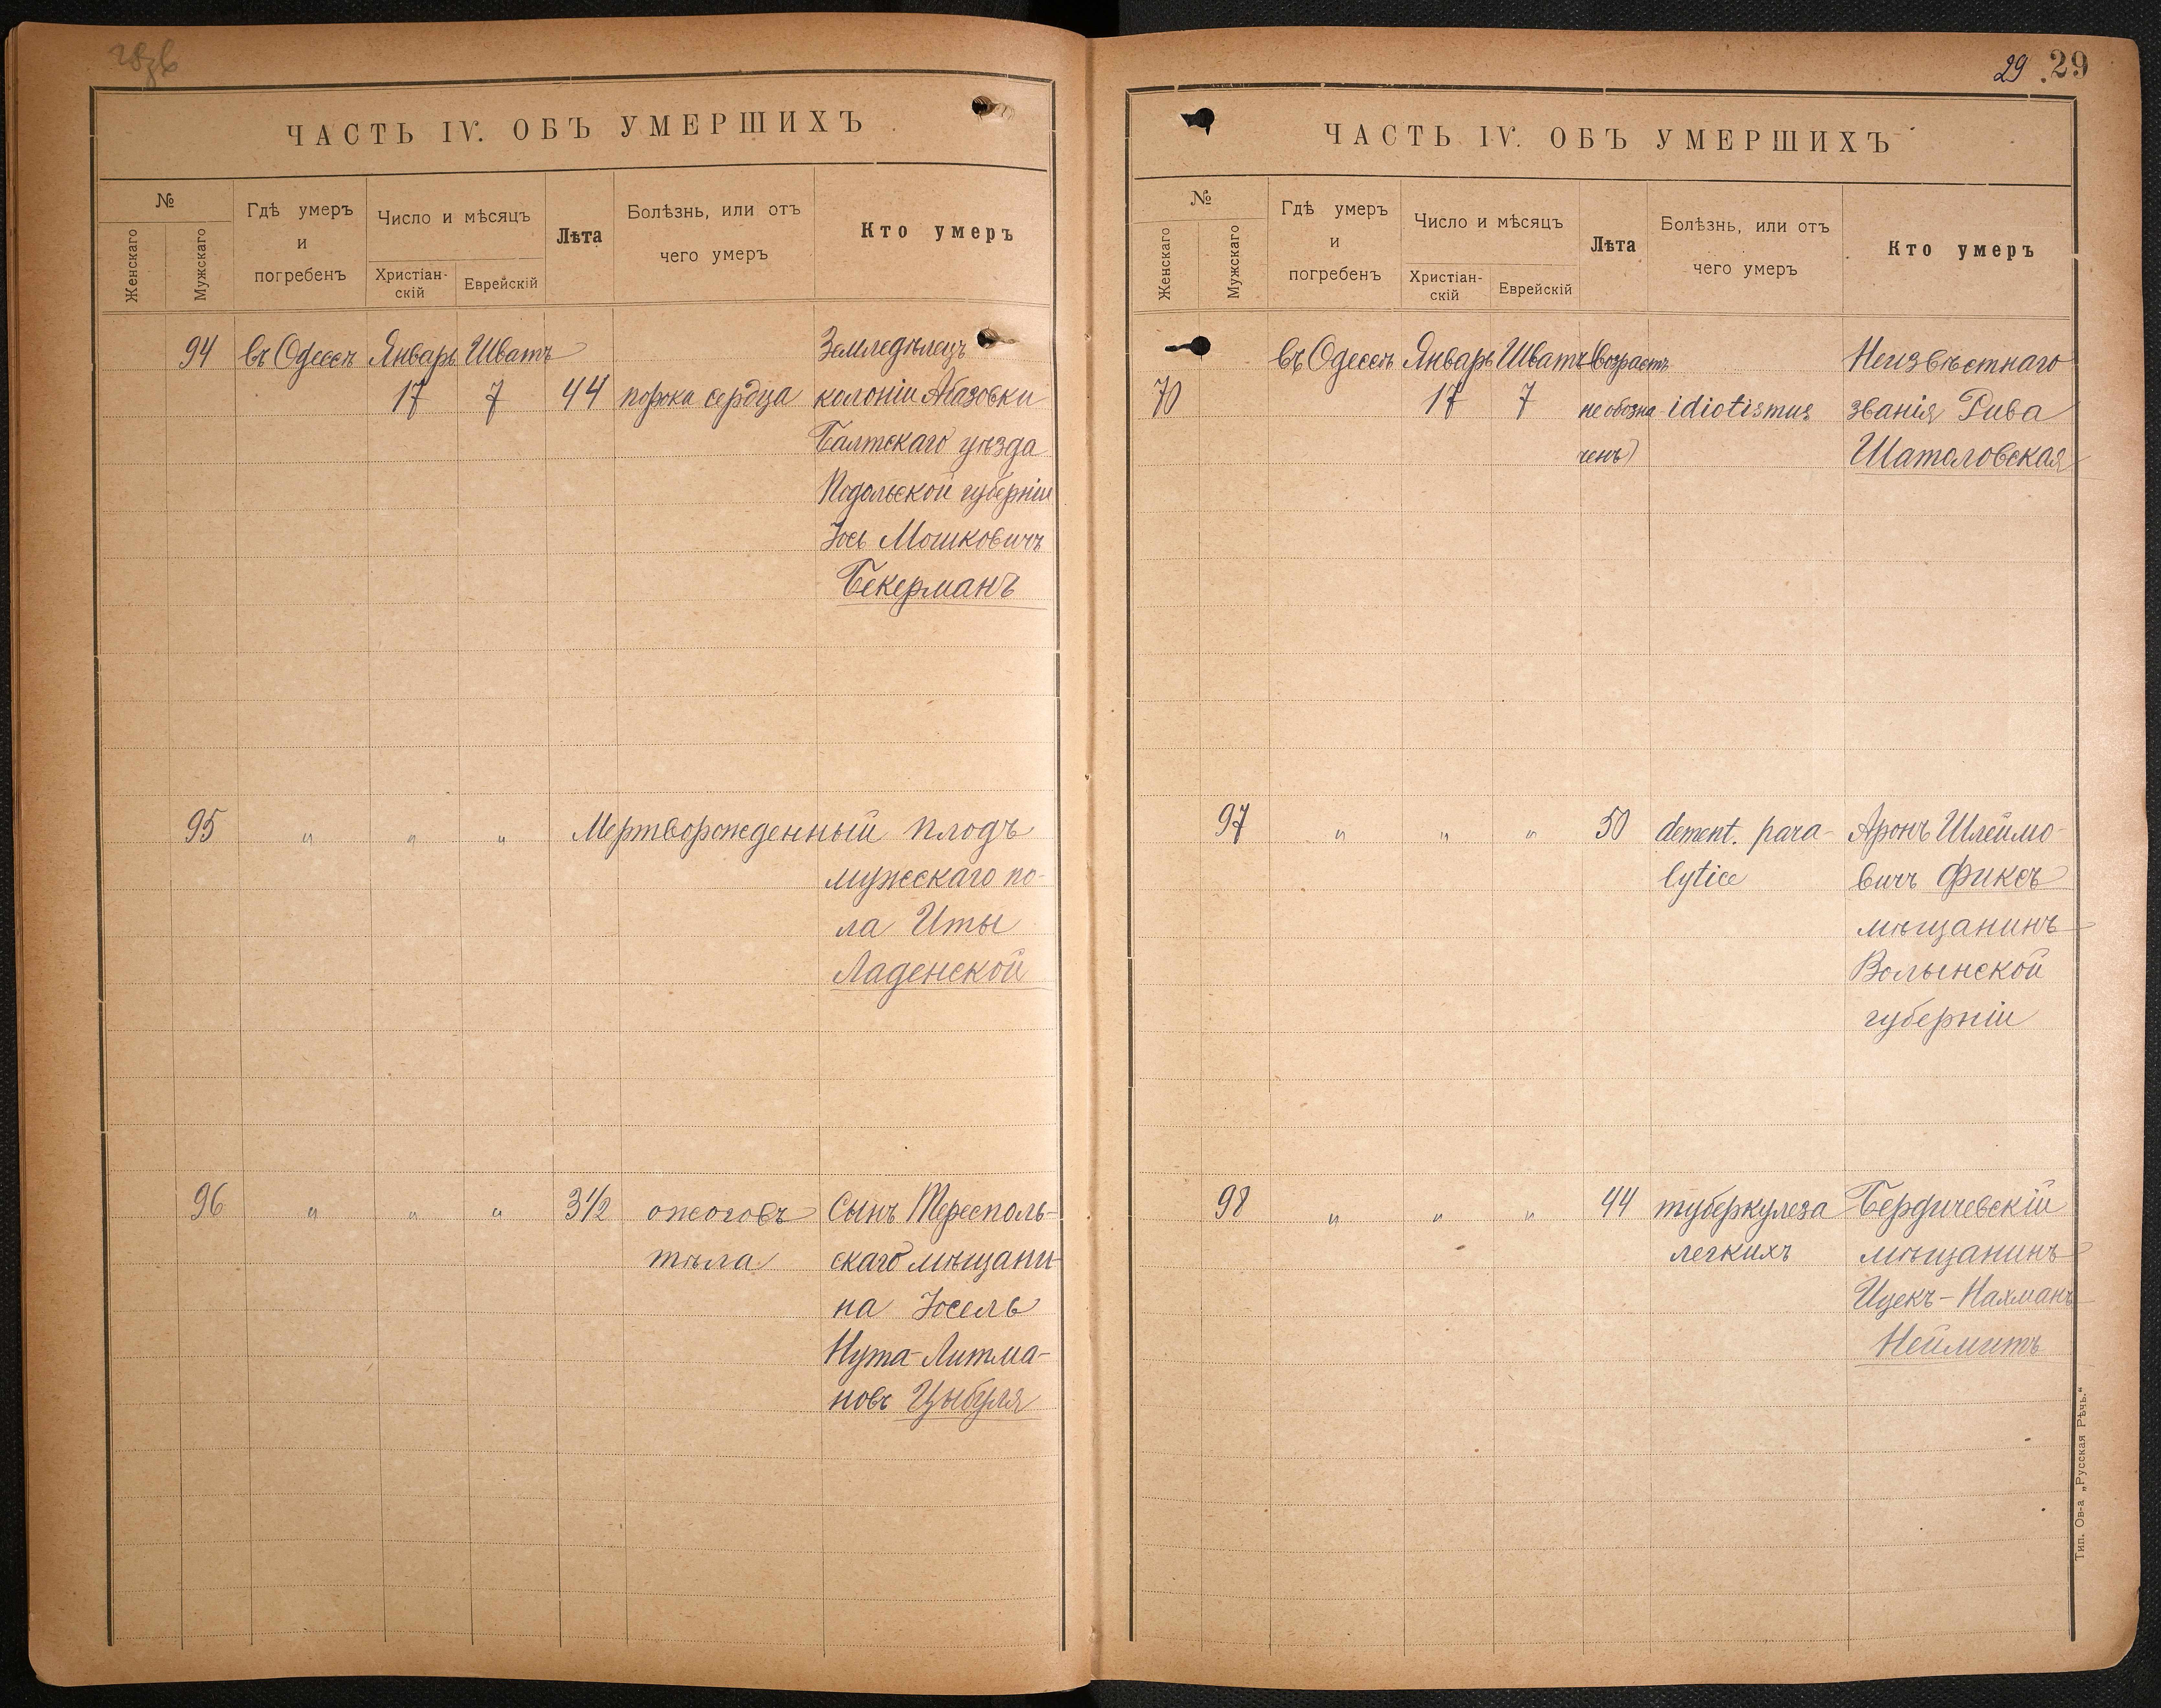 ЧАСТЬ IV. ОБЪ УМЕРШИХЪ
№
Женскаго
Мужскаго
Гдѣ умеръ
и
погребенъ
Число и мѣсяцъ
Христіан-
скій
Еврейскій
Лѣта
Болѣзнь, или отъ
чего умеръ
Кто умеръ
94 въ Одессѣ Январь Шватъ Земледѣлецъ
17 7 44 порока сердца колоніи Абазовки
Балтскаго уѣзда
Подольской губерніи
Іось Мошковичъ
Бекерманъ
95 " " " Мертворожденный плодъ
мужескаго по-
ла Иты
Ладенской
96 " " " 3 1/2 ожоговъ Сынъ Тересполь-
тѣла скаго мѣщани-
на Іосель
Нута-Литма-
новъ Цыбуля
29 29
ЧАСТЬ IV. ОБЪ УМЕРШИХЪ
№
Женскаго
Мужскаго
Гдѣ умеръ
и
погребенъ
Число и мѣсяцъ
Христіан-
скій
Еврейскій
Лѣта
Болѣзнь, или отъ
чего умеръ
Кто умеръ
въ Одессѣ Январь Шватъ (возрастъ Неизвѣстнаго
70 17 7 не обозна idiotismus званія Рива
ченъ) Шаталовская
97 " " " 50 dement. para- Аронъ Шлеймо-
lyticæ вичъ Фиксъ
мѣщанинъ
Волынской
губерніи
98 " " " 44 туберкулеза Бердичевскій
легкихъ мѣщанинъ
Ицекъ-Нахманъ
Неймитъ
Тип. Ов-а „Русская Рѣчь.“